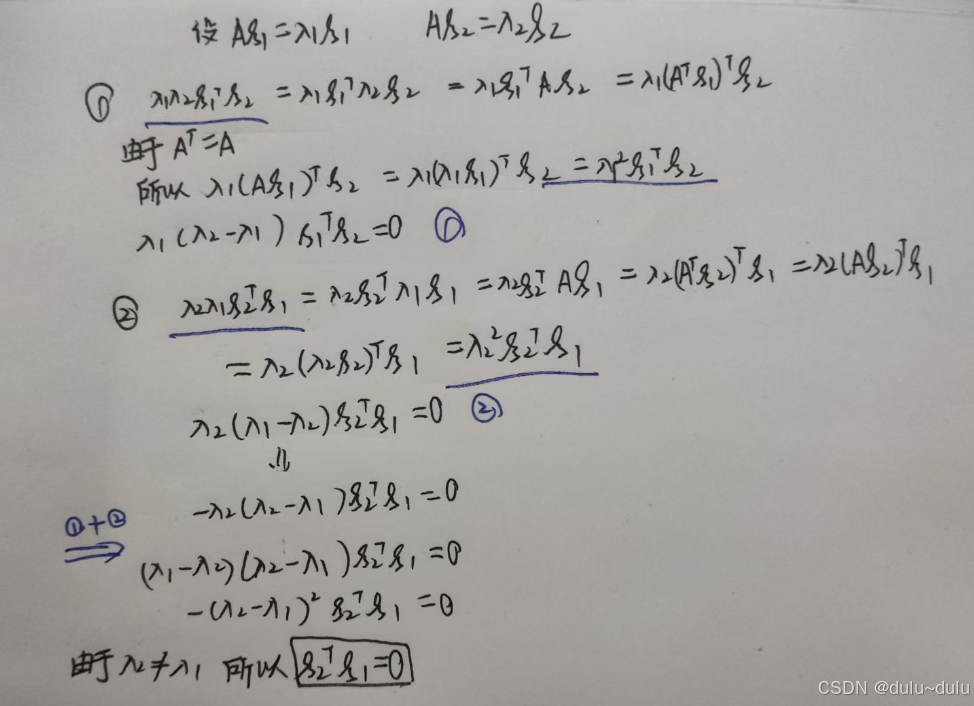 设 Aξ₁=λ₁ξ₁  Aξ₂=λ₂ξ₂
① λ₁λ₂ξ₁ᵀξ₂ = λ₁ξ₁ᵀλ₂ξ₂ = λ₁ξ₁ᵀAξ₂ = λ₁(Aᵀξ₁)ᵀξ₂
由于 Aᵀ=A
所以 λ₁(Aξ₁)ᵀξ₂ = λ₁(λ₁ξ₁)ᵀξ₂ = λ₁²ξ₁ᵀξ₂
λ₁(λ₂-λ₁)ξ₁ᵀξ₂=0 ①
② λ₂λ₁ξ₂ᵀξ₁ = λ₂ξ₂ᵀλ₁ξ₁ = λ₂ξ₂ᵀAξ₁ = λ₂(Aᵀξ₂)ᵀξ₁ = λ₂(Aξ₂)ᵀξ₁
= λ₂(λ₂ξ₂)ᵀξ₁ = λ₂²ξ₂ᵀξ₁
λ₂(λ₁-λ₂)ξ₂ᵀξ₁=0 ②
⇓
-λ₂(λ₂-λ₁)ξ₂ᵀξ₁=0
①+②
⇒ (λ₁-λ₂)(λ₂-λ₁)ξ₂ᵀξ₁=0
-(λ₂-λ₁)²ξ₂ᵀξ₁=0
由于 λ₂≠λ₁ 所以 ξ₂ᵀξ₁=0
CSDN @dulu~dulu